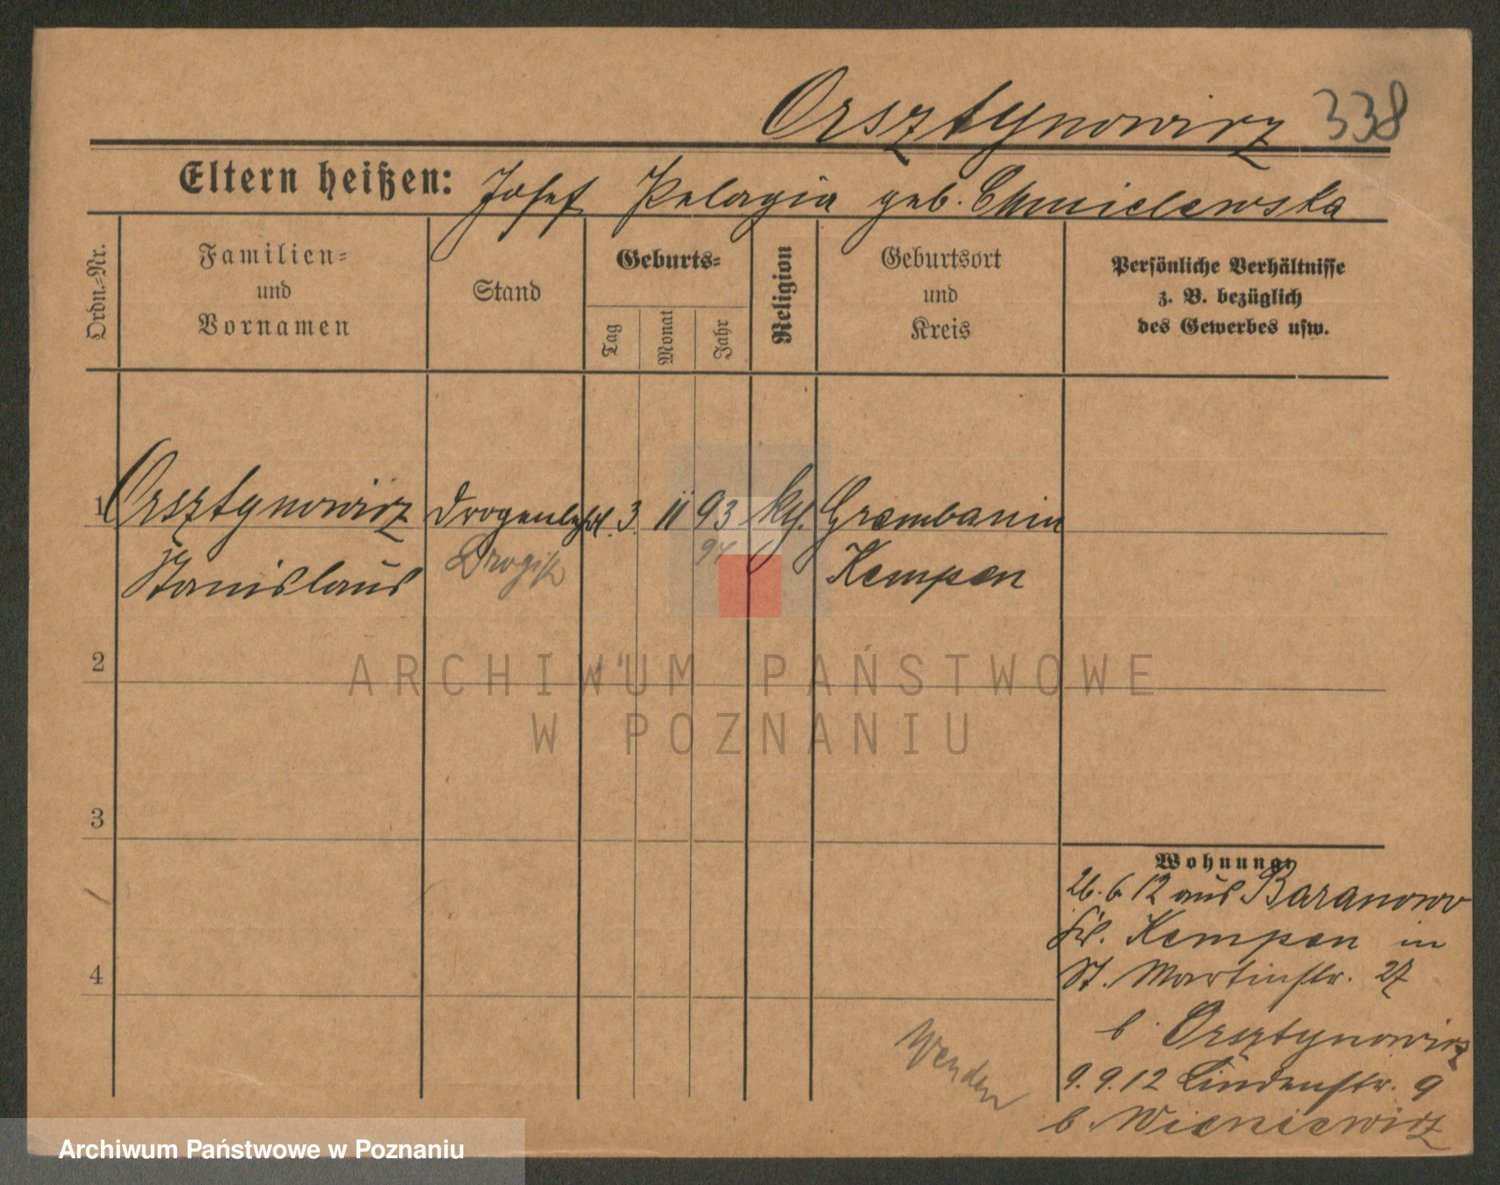 Orsztynowicz 338
Eltern heißen: Josef Pelagia geb. Chmielewska
Ordn.-Nr.
Familien-
und
Vornamen
Stand
Geburts-
Tag
Monat
Jahr
Religion
Geburtsort
und
Kreis
Persönliche Verhältnisse
z. B. bezüglich
des Gewerbes usw.
1 Orsztynowicz Drogenlehrl. 3. 11 93 kath. Grembanin
Stanislaus Drogist 94 Kempen
2
3
4
Wohnung:
26. 6 12 aus Baranowo
Kr. Kempen in
St. Martinstr. 27
b. Orsztynowicz
9. 9. 12 Lindenstr. 9
b. Wieniewicz
Wenden
ARCHIWUM PAŃSTWOWE
W POZNANIU
Archiwum Państwowe w Poznaniu